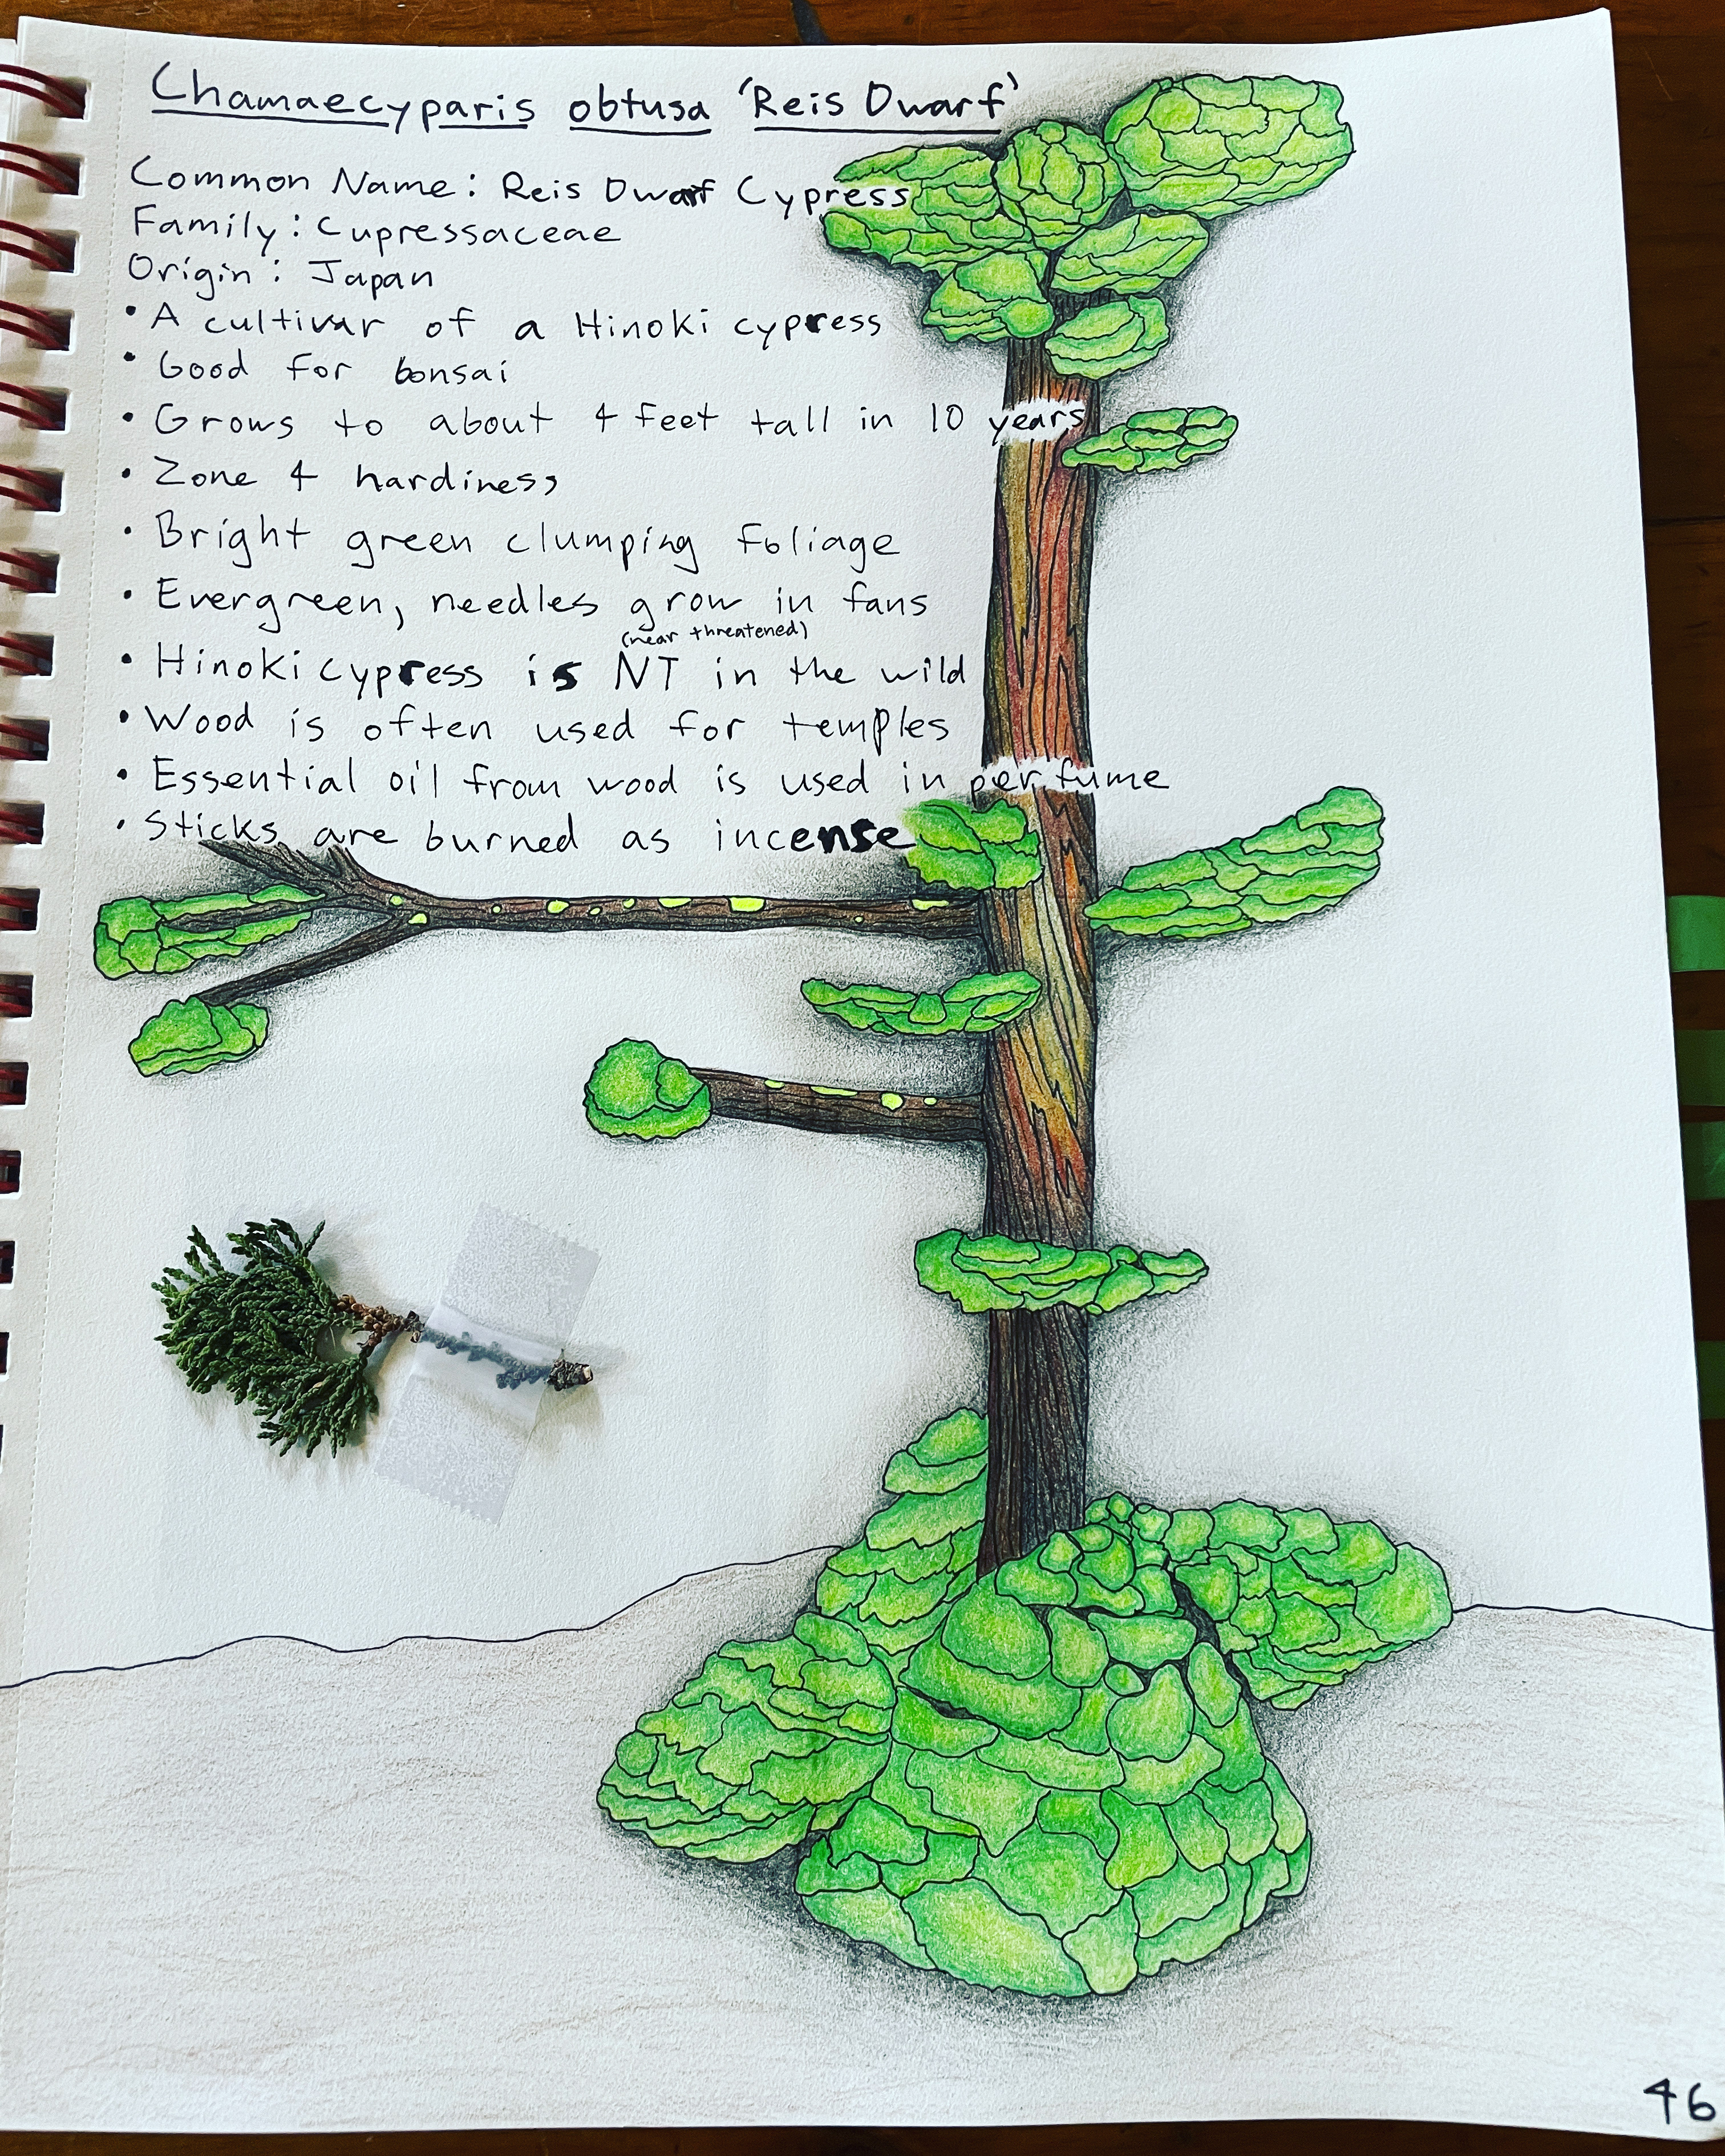 Chamaecyparis obtusa 'Reis Dwarf'
Common Name: Reis Dwarf Cypress
Family: Cupressaceae
Origin: Japan
• A cultivar of a Hinoki cypress
• Good for bonsai
• Grows to about 4 feet tall in 10 years
• Zone 4 hardiness
• Bright green clumping foliage
• Evergreen, needles grow in fans
(near threatened)
• Hinoki cypress is NT in the wild
• Wood is often used for temples
• Essential oil from wood is used in perfume
• Sticks are burned as incense
46